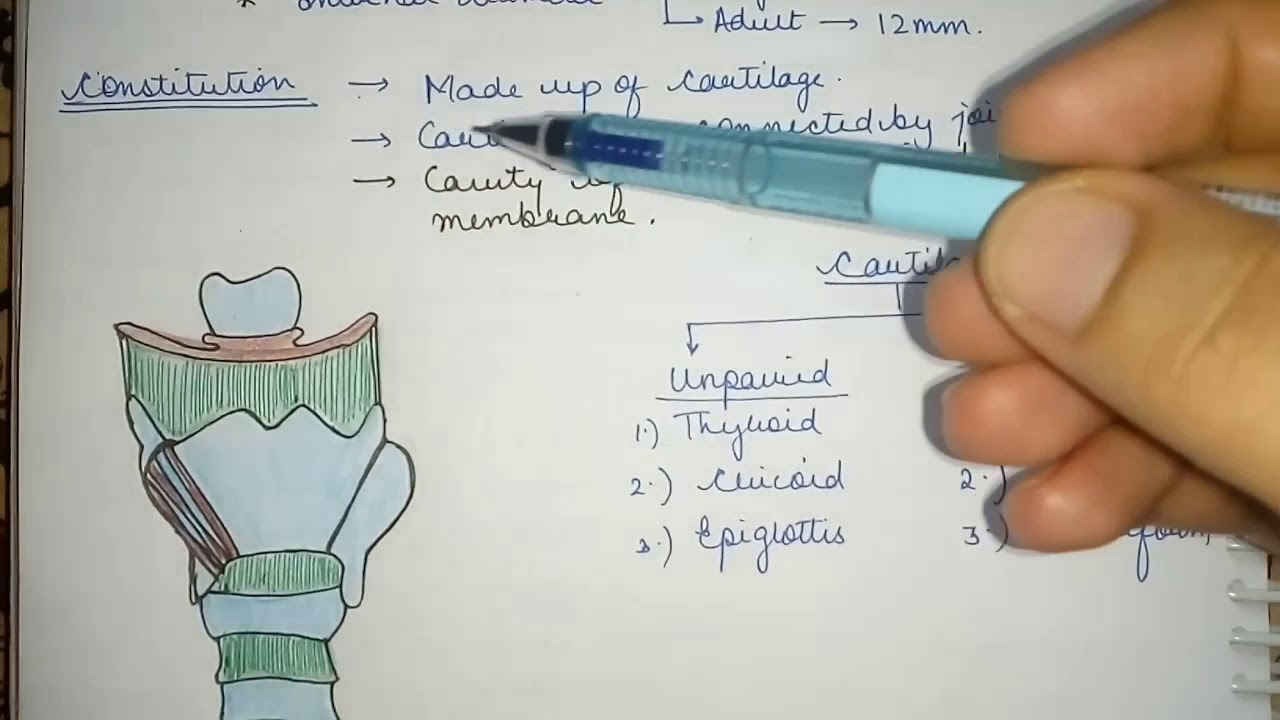 Adult → 12mm.
Constitution → Made up of cartilage.
→ connected by
→ Cavity
membrane.
Unpaired
1.) Thyroid
2.) Cricoid 2.)
3.) Epiglottis 3.)